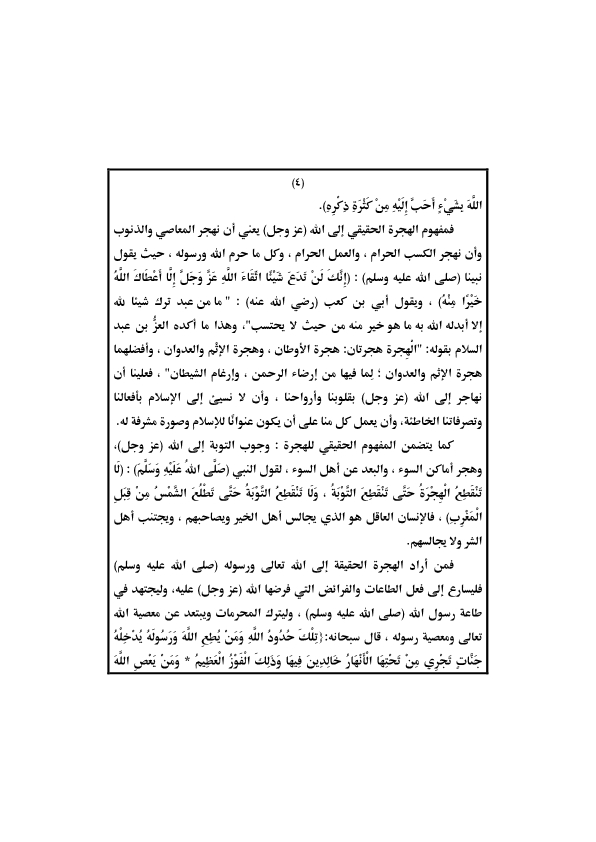 (٤)
اللَّهَ بِشَيْءٍ أَحَبَّ إِلَيْهِ مِنْ كَثْرَةِ ذِكْرِهِ).
فمفهوم الهجرة الحقيقي إلى الله (عز وجل) يعني أن نهجر المعاصي والذنوب
وأن نهجر الكسب الحرام ، والعمل الحرام ، وكل ما حرم الله ورسوله ، حيث يقول
نبينا (صلى الله عليه وسلم) : (إِنَّكَ لَنْ تَدَعَ شَيْئًا اتِّقَاءَ اللَّهِ عَزَّ وَجَلَّ إِلَّا أَعْطَاكَ اللَّهُ
خَيْرًا مِنْهُ) ، ويقول أبي بن كعب (رضي الله عنه) : " ما من عبد ترك شيئا لله
إلا أبدله الله به ما هو خير منه من حيث لا يحتسب"، وهذا ما أكده العزُّ بن عبد
السلام بقوله: "الْهجرة هجرتان: هجرة الأوطان ، وهجرة الإثْم والعدوان ، وأفضلهما
هجرة الإثم والعدوان ؛ لِما فيها من إرضاء الرحمن ، وإرغام الشيطان" ، فعلينا أن
نهاجر إلى الله (عز وجل) بقلوبنا وأرواحنا ، وأن لا نسيئ إلى الإسلام بأفعالنا
وتصرفاتنا الخاطئة، وأن يعمل كل منا على أن يكون عنوانًا للإسلام وصورة مشرفة له.
كما يتضمن المفهوم الحقيقي للهجرة : وجوب التوبة إلى الله (عز وجل)،
وهجر أماكن السوء ، والبعد عن أهل السوء ، لقول النبي (صَلَّى اللهُ عَلَيْهِ وَسَلَّمَ) : (لَا
تَنْقَطِعُ الْهِجْرَةُ حَتَّى تَنْقَطِعَ التَّوْبَةُ ، وَلَا تَنْقَطِعُ التَّوْبَةُ حَتَّى تَطْلُعَ الشَّمْسُ مِنْ قِبَلِ
الْمَغْرِبِ) ، فالإنسان العاقل هو الذي يجالس أهل الخير ويصاحبهم ، ويجتنب أهل
الشر ولا يجالسهم.
فمن أراد الهجرة الحقيقة إلى الله تعالى ورسوله (صلى الله عليه وسلم)
فليسارع إلى فعل الطاعات والفرائض التي فرضها الله (عز وجل) عليه، وليجتهد في
طاعة رسول الله (صلى الله عليه وسلم) ، وليترك المحرمات ويبتعد عن معصية الله
تعالى ومعصية رسوله ، قال سبحانه:{تِلْكَ حُدُودُ اللَّهِ وَمَنْ يُطِعِ اللَّهَ وَرَسُولَهُ يُدْخِلْهُ
جَنَّاتٍ تَجْرِي مِنْ تَحْتِهَا الْأَنْهَارُ خَالِدِينَ فِيهَا وَذَلِكَ الْفَوْزُ الْعَظِيمُ * وَمَنْ يَعْصِ اللَّهَ